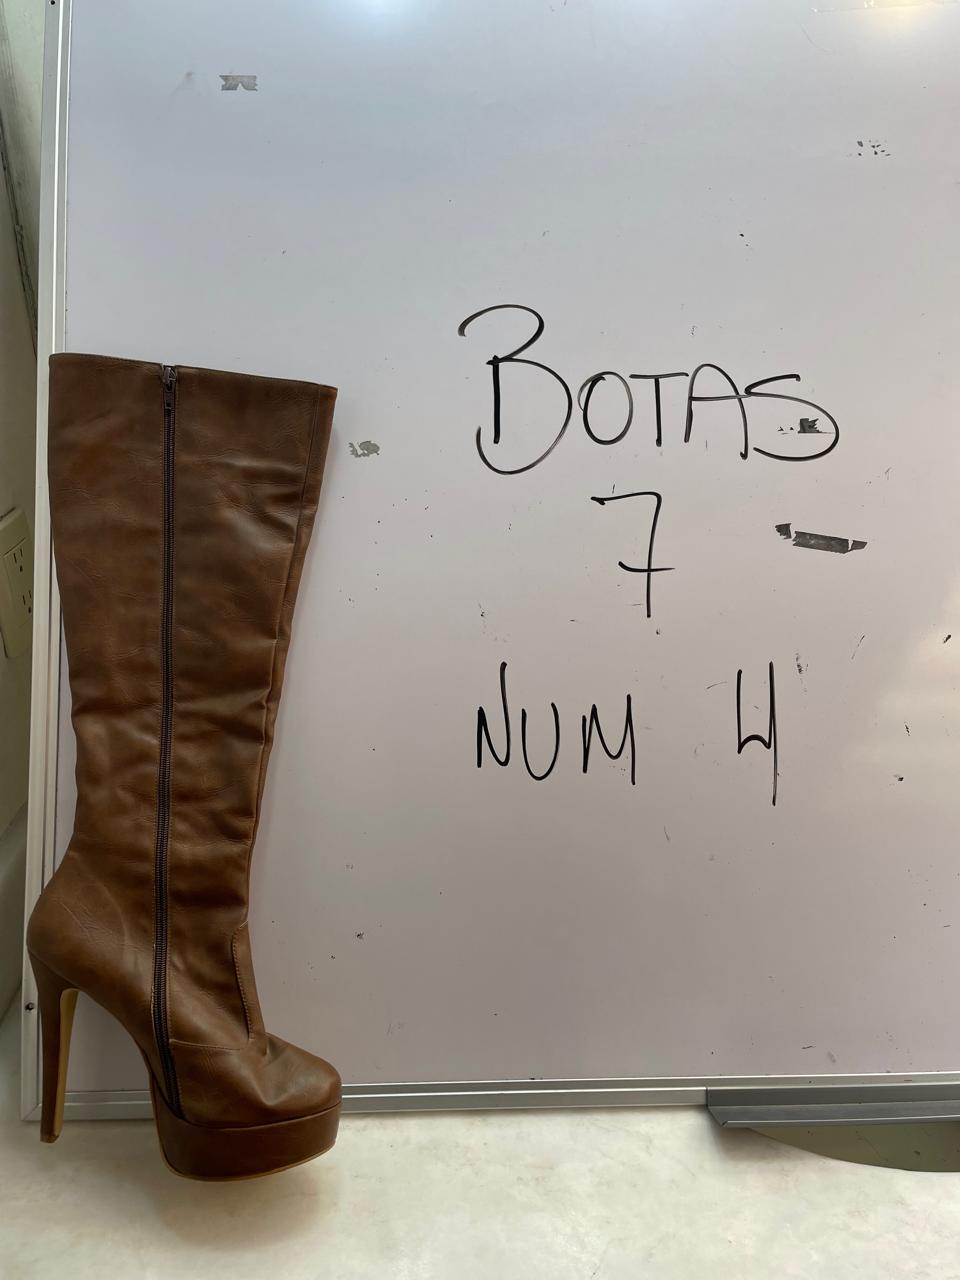 BOTAS
7
NUM 4